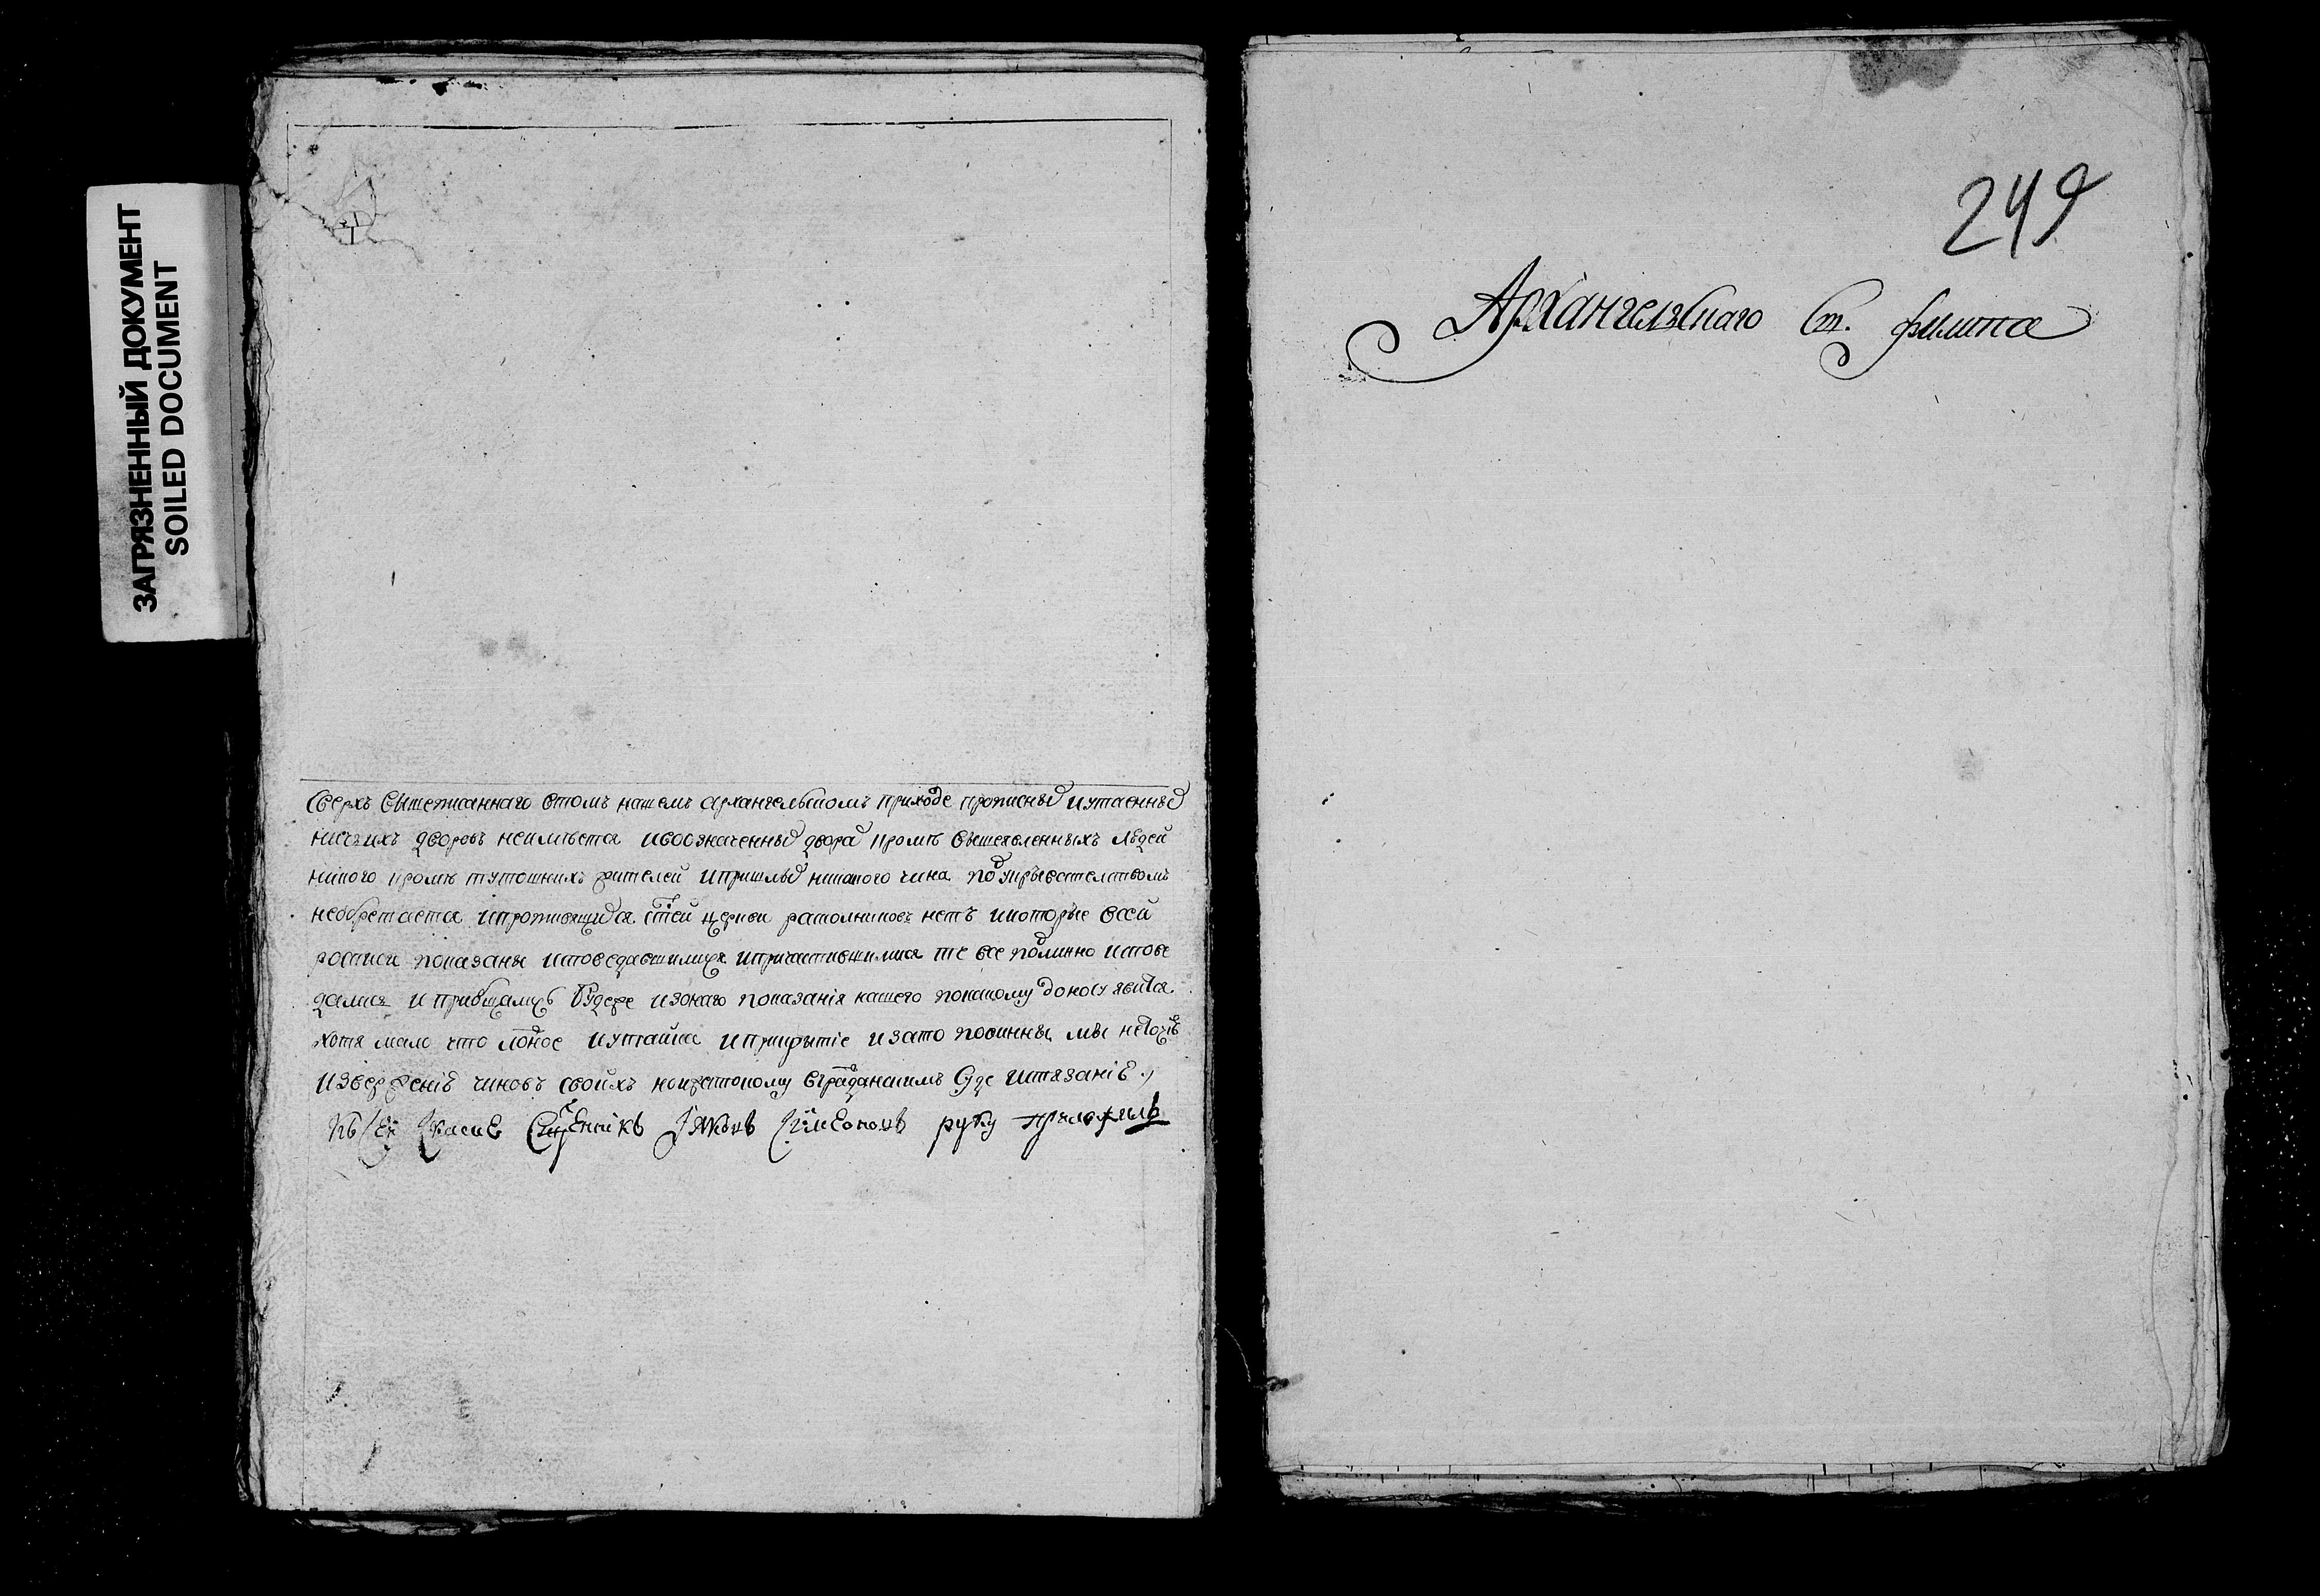 ЗАГРЯЗНЕННЫЙ ДОКУМЕНТ
SOILED DOCUMENT
Сверхъ вышеписаннаго втомъ нашемъ архангельскомъ приходе прописныхъ иутаенныхъ
ничьихъ дворовъ неимѣется ивобозначенныхъ дворахъ кромѣ вышеявленныхъ людей
никого кромѣ тутошнихъ жителей ипришлыхъ никакого чина подукрывателствомъ
необретается ипротивящихся стей церкви раскольниковъ нетъ икоторые всей
росписи показаны исповедавшимися ипричастившимися те все подлинно испове
далися иприобщались Будеже изонаго показанія нашего покакому доносу явится
хотя мало что ложное иутайка иприкрытіе изато повинны мы
изверженію чиновъ своихъ ижестокому вгражданскимъ суде истязанію
Священникъ Іяковъ Симеоновъ руку приложилъ
249
Архангельскаго Ст. филипа